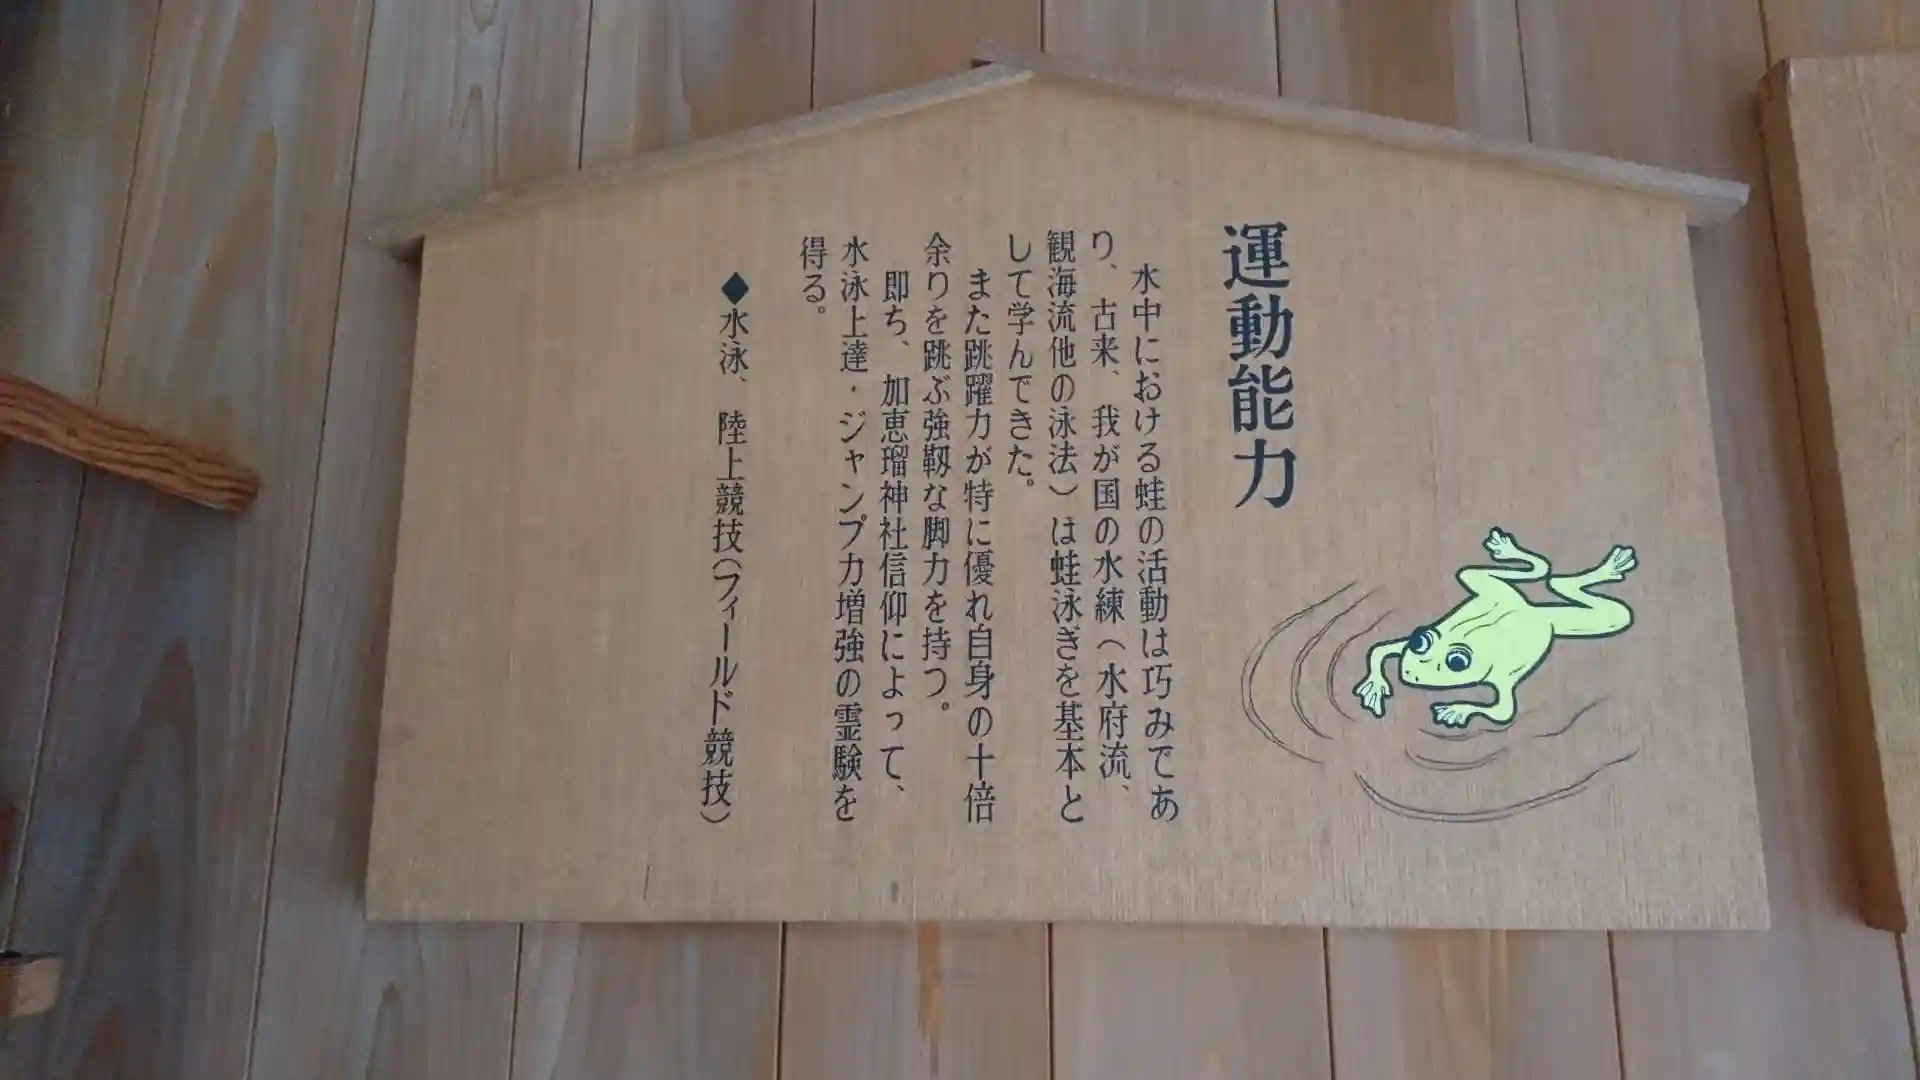 運動能力
水中における蛙の活動は巧みであ
り、古来、我が国の水練（水府流、
観海流他の泳法）は蛙泳ぎを基本と
して学んできた。
また跳躍力が特に優れ自身の十倍
余りを跳ぶ強靱な脚力を持つ。
即ち、加恵瑠神社信仰によって、
水泳上達・ジャンプ力増強の霊験を
得る。
◆水泳、陸上競技（フィールド競技）